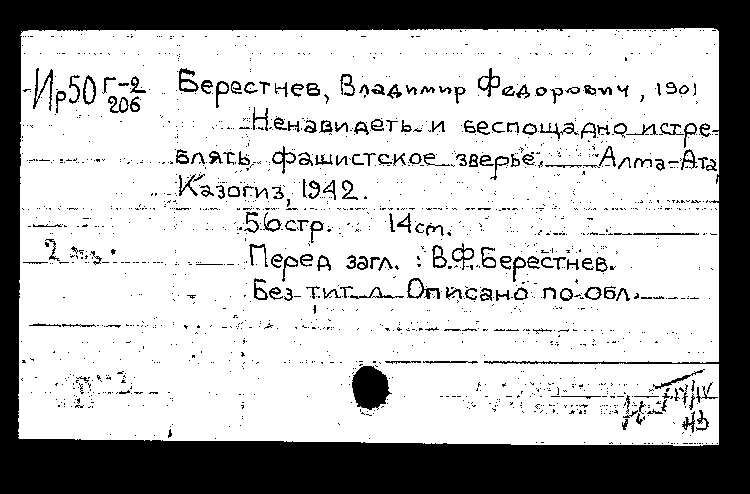 Ир50 Г-2
206
Берестнев, Владимир Федорович, 1901
Ненавидеть и беспощадно истре-
блять фашистское зверье. Алма-Ата,
Казогиз, 1942.
56стр. 14см.
2 экз.
Перед загл. : В.Ф.Берестнев.
Без тит. л. Описано по обл.